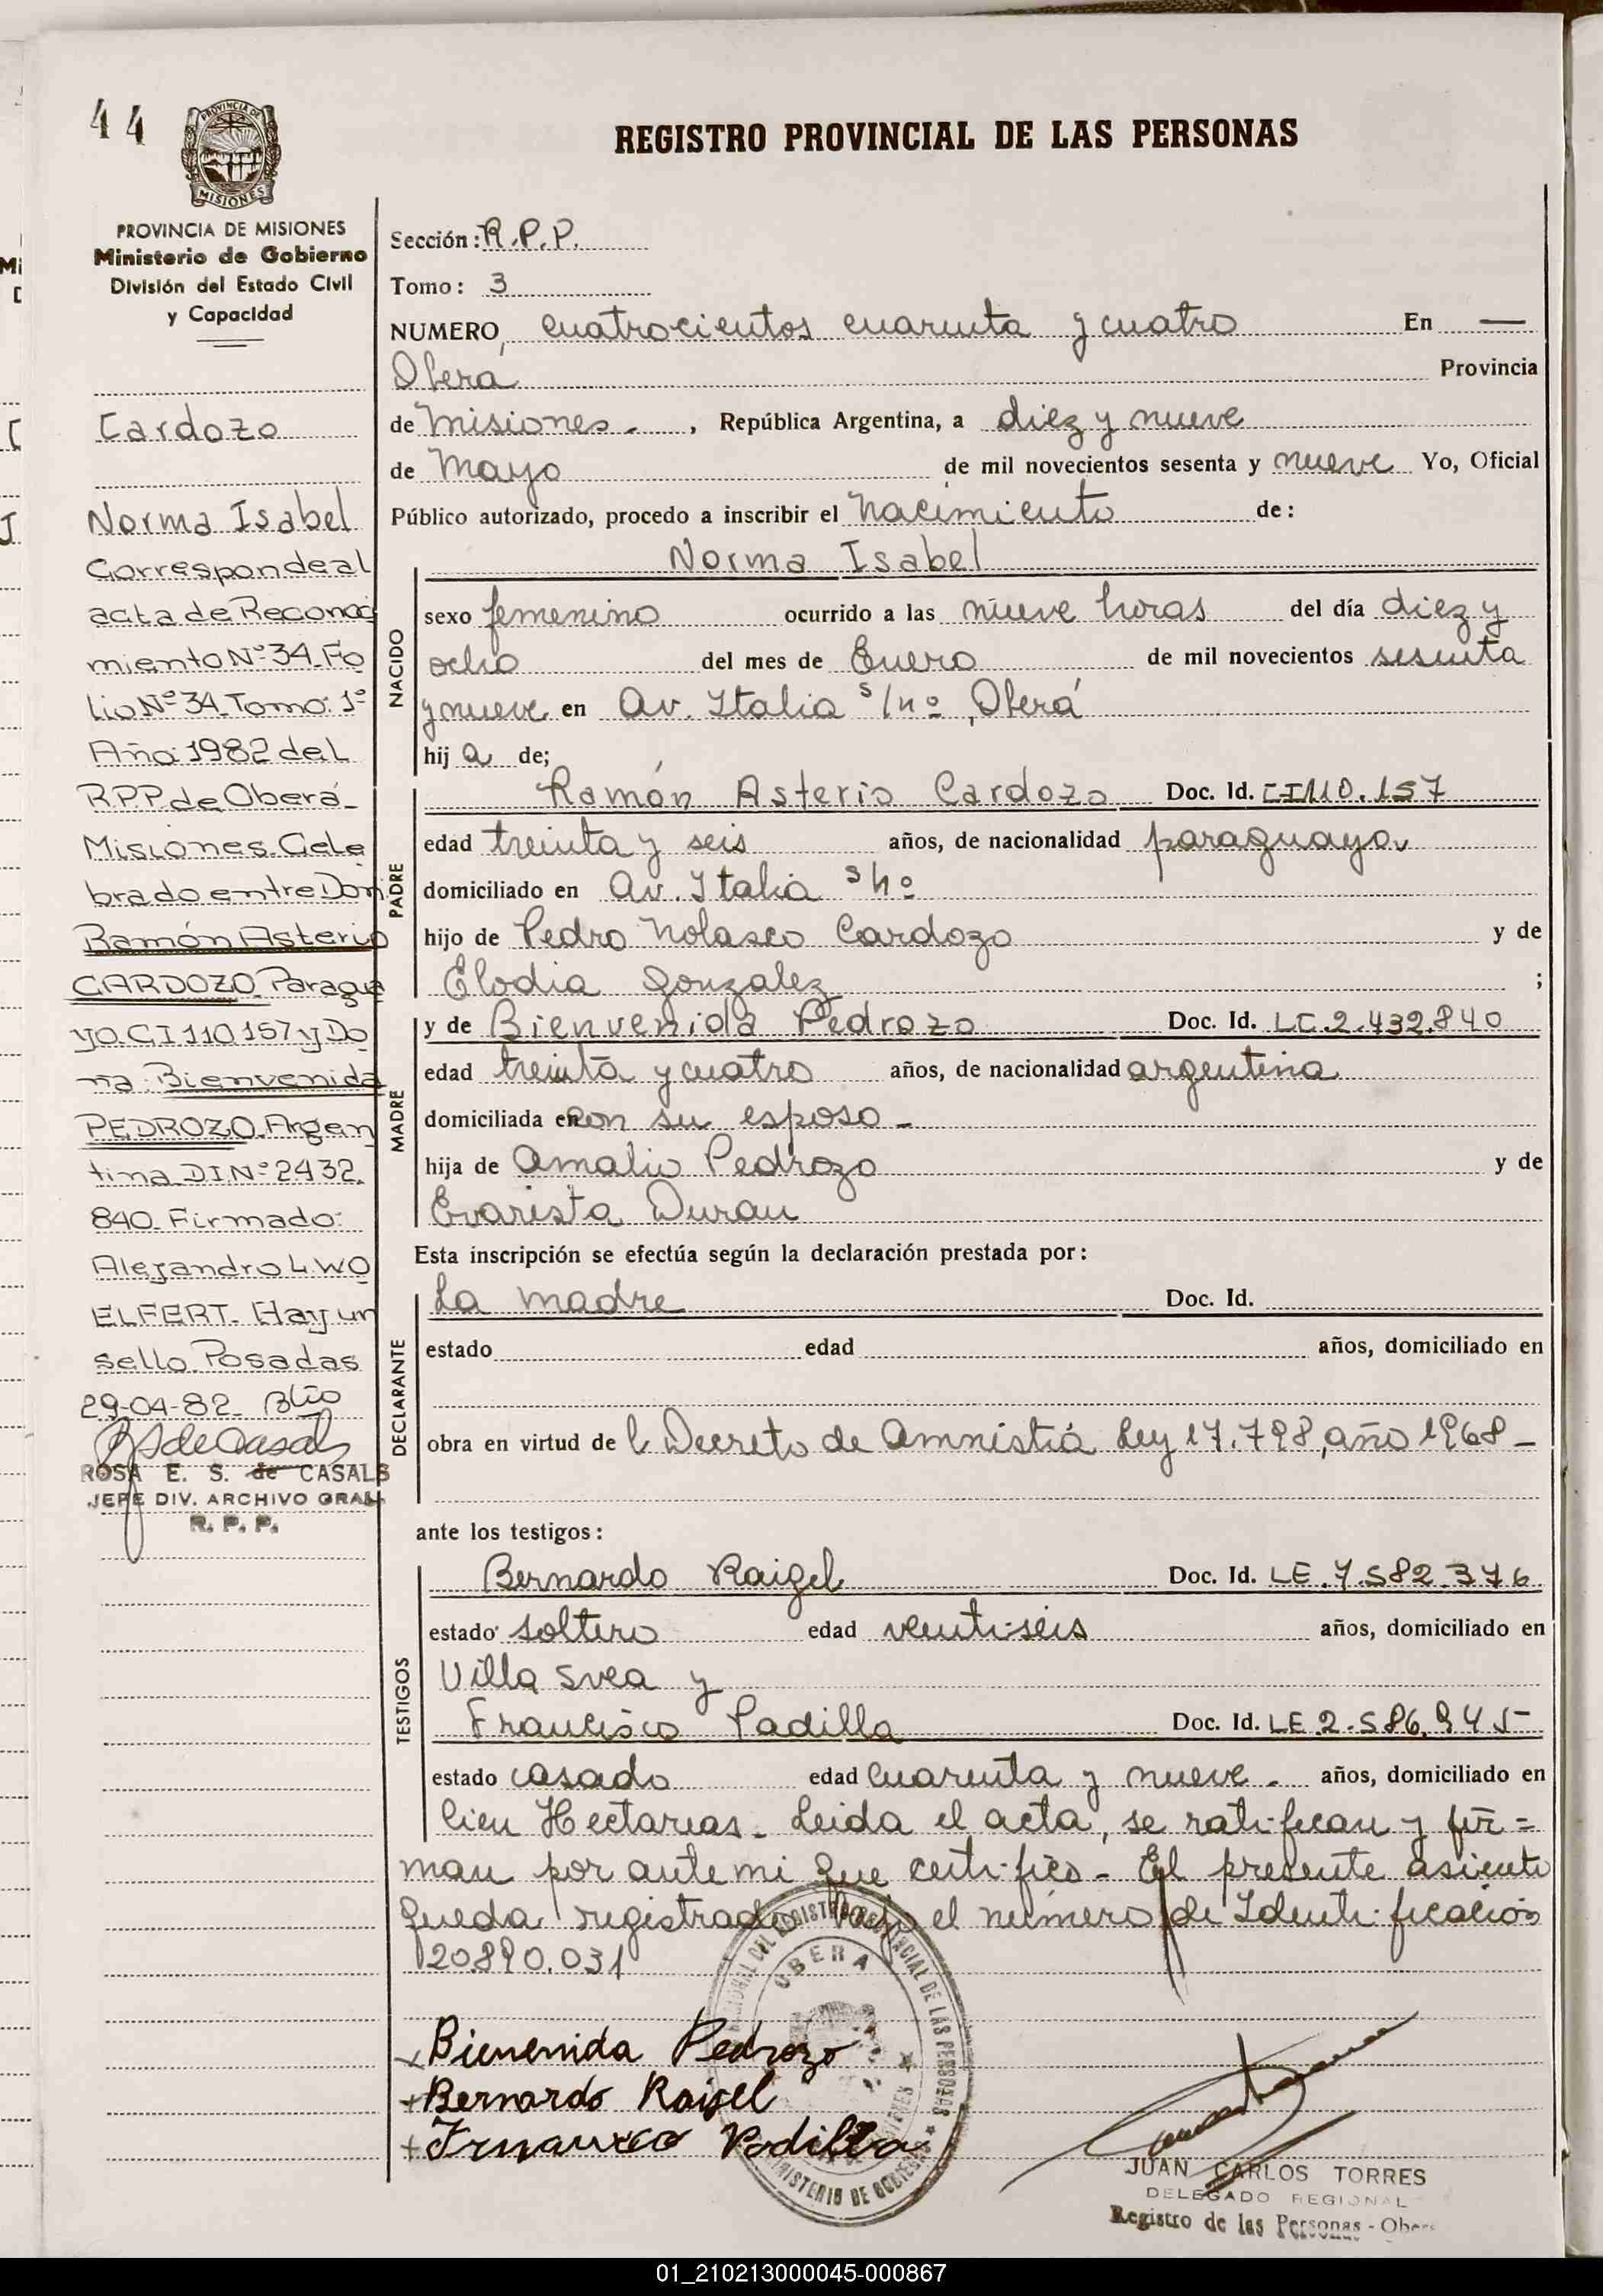 44
PROVINCIA DE
MISIONES
REGISTRO PROVINCIAL DE LAS PERSONAS
PROVINCIA DE MISIONES
Ministerio de Gobierno
División del Estado Civil
y Capacidad
Cardozo
Norma Isabel
Corresponde al
acta de Reconoci
miento Nº 34 Fo
lio Nº 34 Tomo: 1º
Año: 1982 del
R.P.P de Oberá-
Misiones. Cele
brado entre Don
Ramón Asterio
CARDOZO Paragua
yo CI 110157 y Do
ña: Bienvenida
PEDROZO. Argen
tina D.I.Nº 2432.
840. Firmado:
Alejandro L. WO
ELFERT. Hay un
sello Posadas
29-04-82-
ROSA E. S. de CASALS
JEFE DIV. ARCHIVO GRAL
R. P. P.
Sección: R.P.P.
Tomo: 3
NUMERO, cuatrocientos cuarenta y cuatro En —
Oberá Provincia
de Misiones. , República Argentina, a diez y nueve
de Mayo de mil novecientos sesenta y nueve Yo, Oficial
Público autorizado, procedo a inscribir el nacimiento de:
Norma Isabel
NACIDO
sexo femenino ocurrido a las nueve horas del día diez y
ocho del mes de Enero de mil novecientos sesenta
y nueve en Av. Italia s/nº, Oberá
hij a de;
PADRE
Ramón Asterio Cardozo Doc. Id. CI 110.157
edad treinta y seis años, de nacionalidad paraguaya
domiciliado en Av. Italia s/nº
hijo de Pedro Nolasco Cardozo y de
Elodia Gonzalez ;
MADRE
y de Bienvenida Pedrozo Doc. Id. LC.2.432.840
edad treinta y cuatro años, de nacionalidad argentina
domiciliada en con su esposo -
hija de Amalio Pedrozo y de
Evarista Duran
Esta inscripción se efectúa según la declaración prestada por:
DECLARANTE
La madre Doc. Id.
estado edad años, domiciliado en
obra en virtud de l Decreto de Amnistía Ley 17.798, año 1968-
ante los testigos:
TESTIGOS
Bernardo Raigel Doc. Id. LE.7.582.376
estado soltero edad veinti-seis años, domiciliado en
Villa Svea y
Francisco Padilla Doc. Id. LE 2.586.945-
estado casado edad cuarenta y nueve. años, domiciliado en
Cien Hectareas. Leida el acta, se ratifican y fir=
man por ante mi que certifico- El presente asiento
queda registrado bajo el número de Identificación
20.890.031
OBERA
REGISTRO PROVINCIAL DE LAS PERSONAS
MINISTERIO DE GOBIERNO
Bienvenida Pedrozo
Bernardo Raigel
Padilla
JUAN CARLOS TORRES
DELEGADO REGIONAL
Registro de las Personas - Obera
01_210213000045-000867